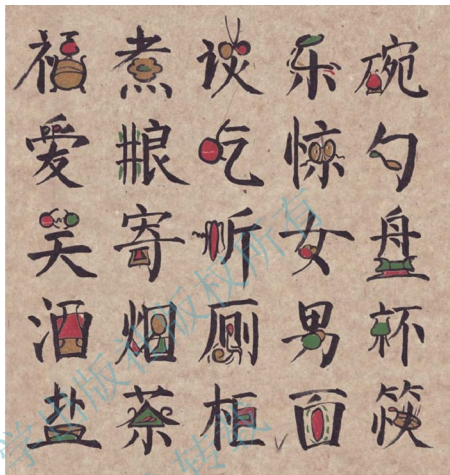 福煮谈乐碗
爱粮吃惊勺
笑寄听女盘
酒烟厕男杯
盐茶柜面筷
学出版社版权所有